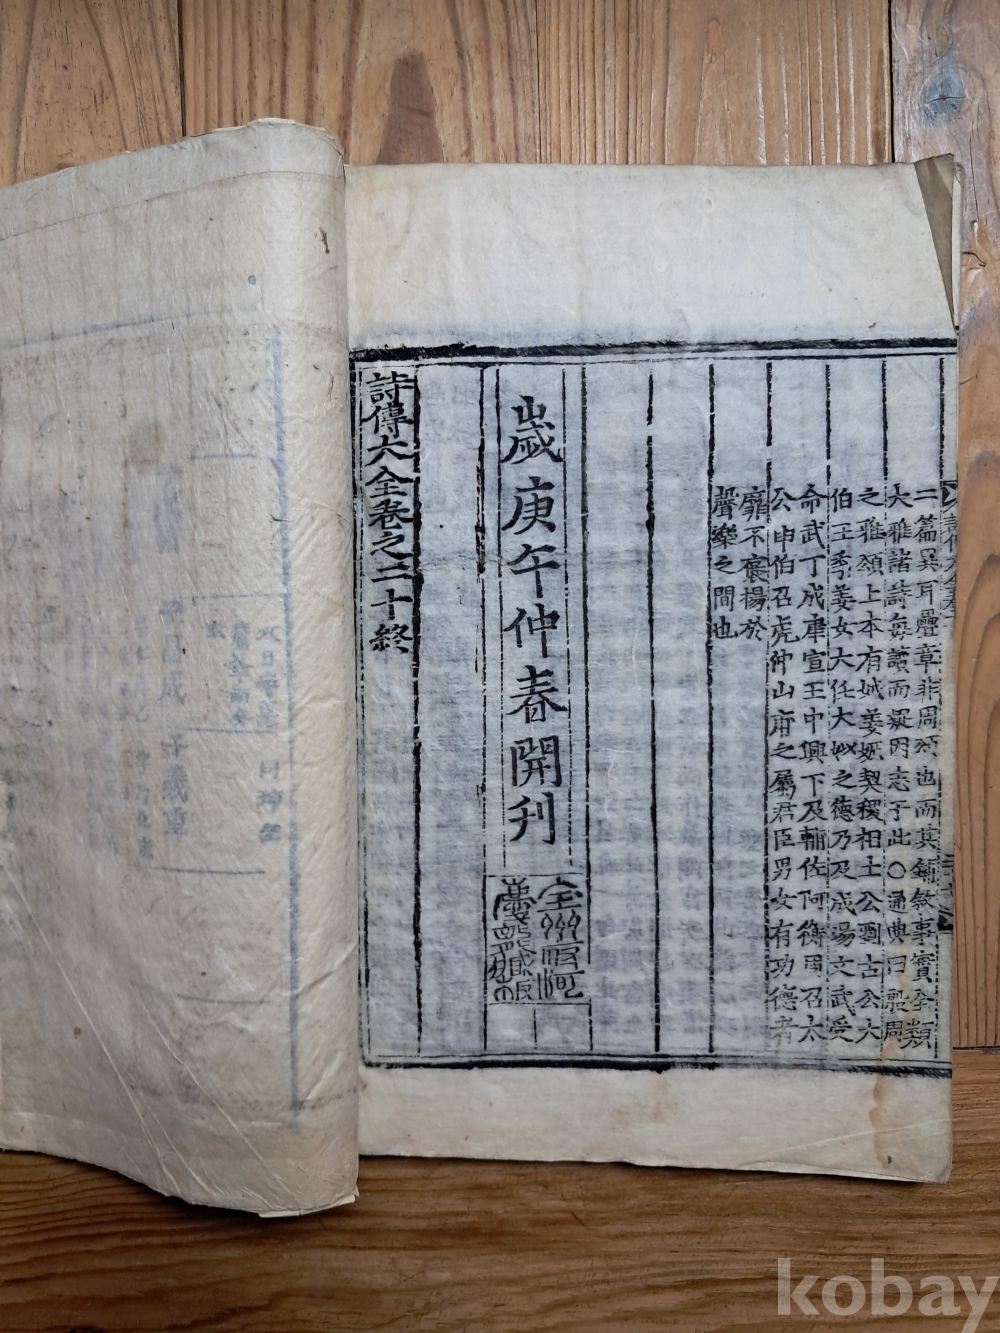 二篇異耳疊章非周頌也而其鋪敘事實全類
大雅諸詩每讀而疑因志于此○通典曰殷周
之雅頌上本有娀姜嫄契稷相土公劉古公大
伯王季姜女大任大姒之德乃及成湯文武受
命武丁成康宣王中興下及輔佐阿衡周召太
公申伯召虎仲山甫之屬君臣男女有功德者
靡不褒揚於
聲樂之間也
歲庚午仲春開刊
全州府河
慶龍藏板
詩傳大全卷之二十終
kobay